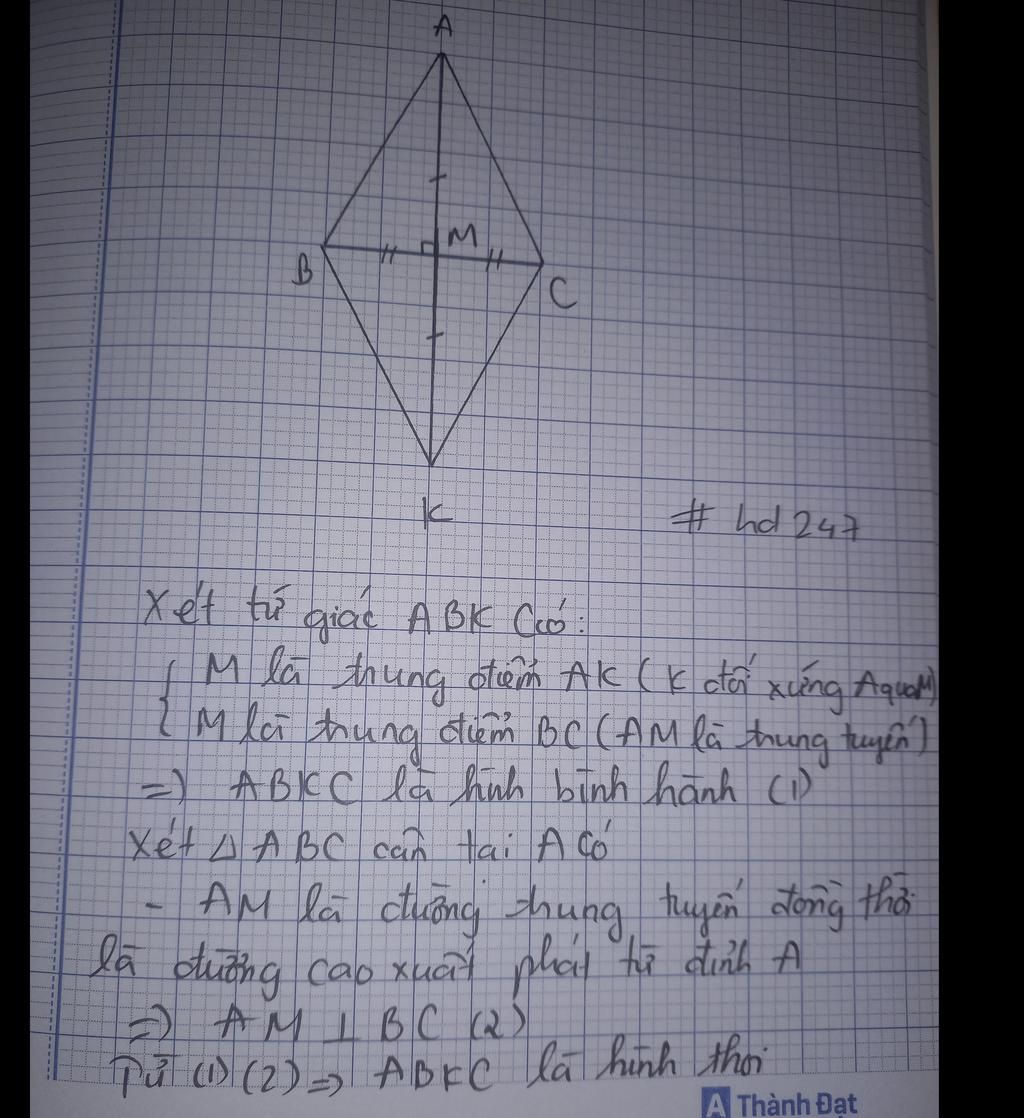 A
M
B
C
K
# hd 247
Xét tứ giác ABKC có:
M là trung điểm AK (K đối xứng A qua M)
M là trung điểm BC (AM là trung tuyến)
=> ABKC là hình bình hành (1)
Xét Δ ABC cân tại A có
- AM là đường trung tuyến đồng thời
là đường cao xuất phát từ đỉnh A
=> AM ⊥ BC (2)
Từ (1) (2) => ABKC là hình thoi
A Thành Đạt